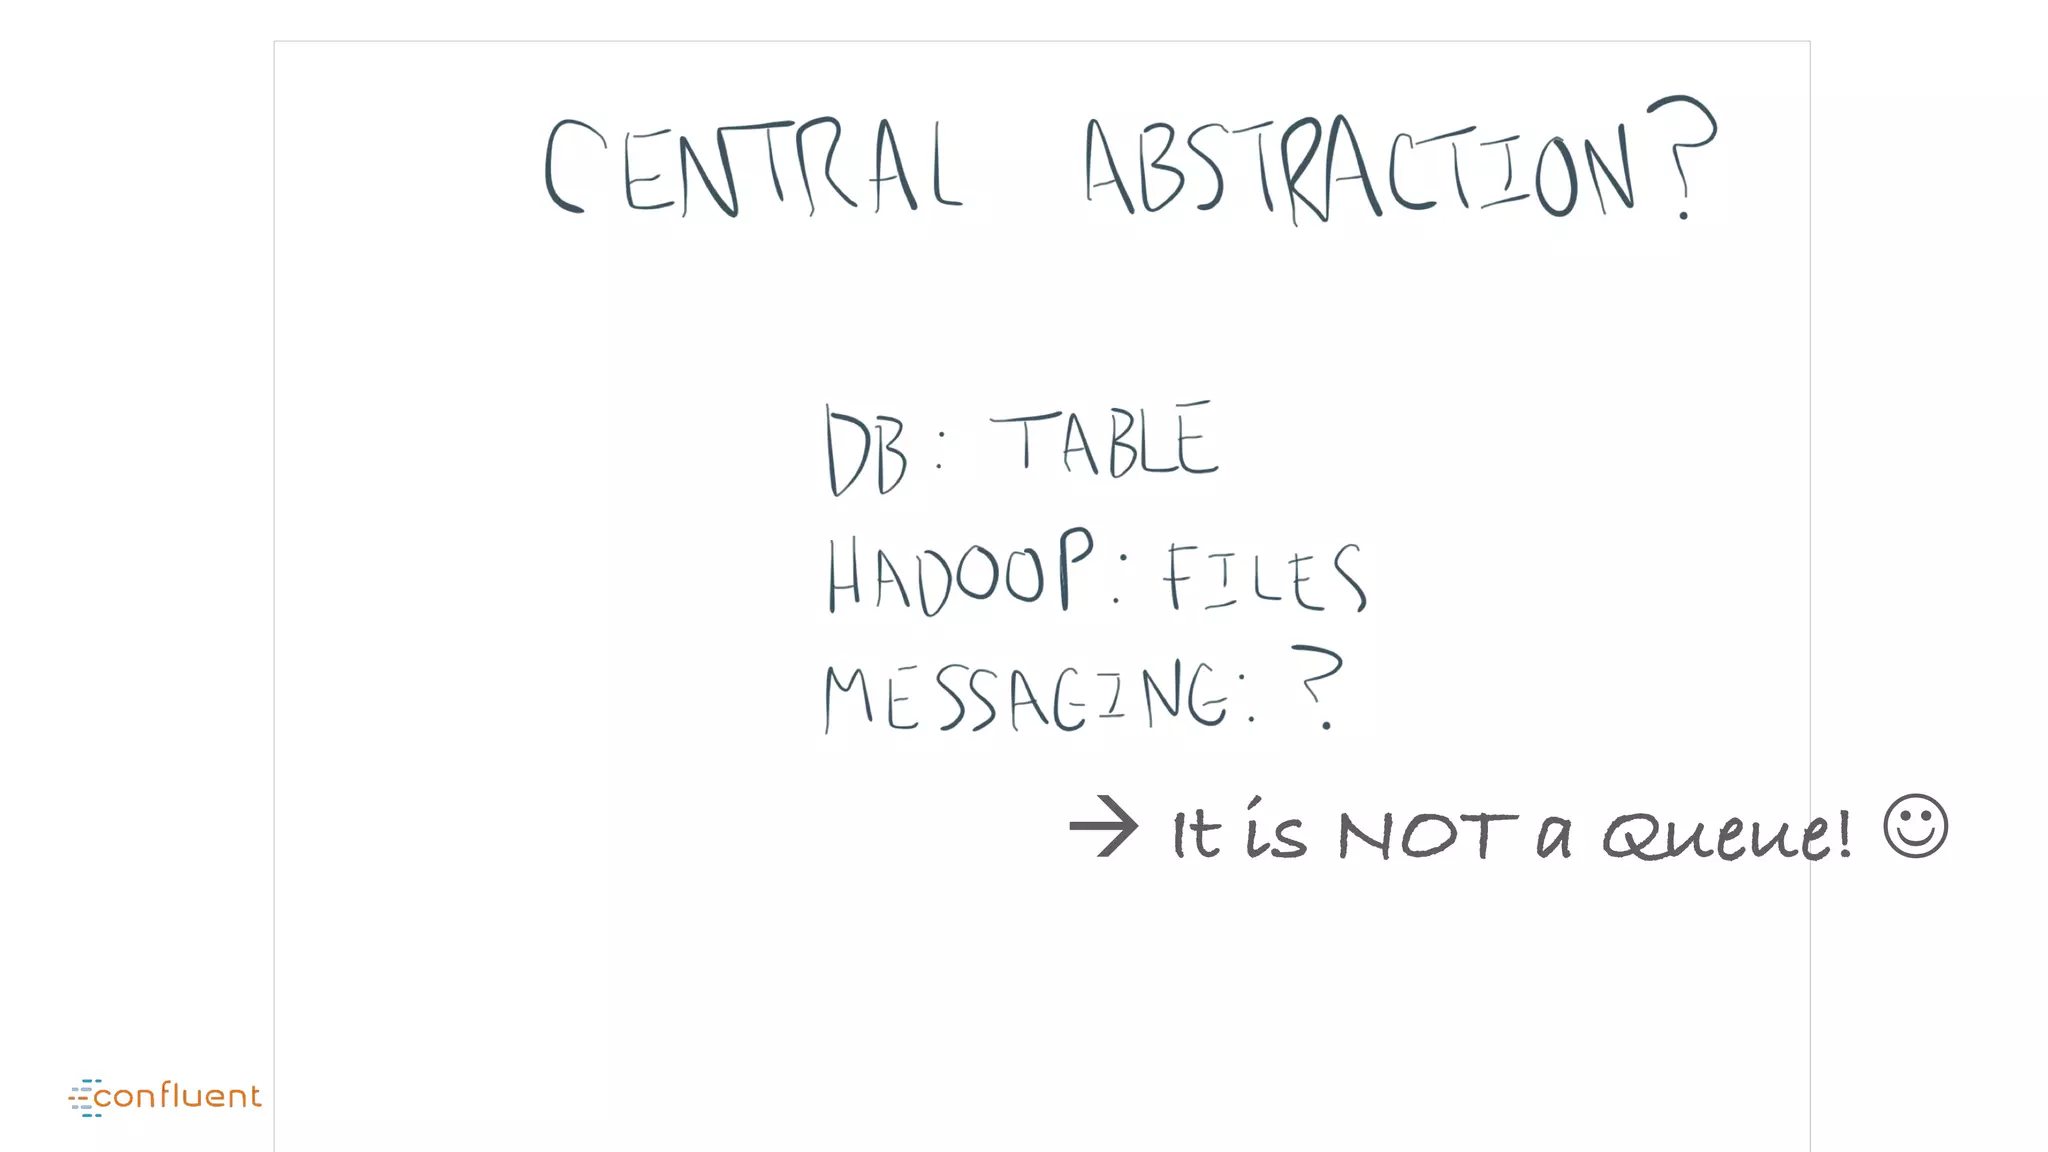 CENTRAL ABSTRACTION?
DB: TABLE
HADOOP: FILES
MESSAGING: ?
→ It is NOT a Queue! ☺
confluent